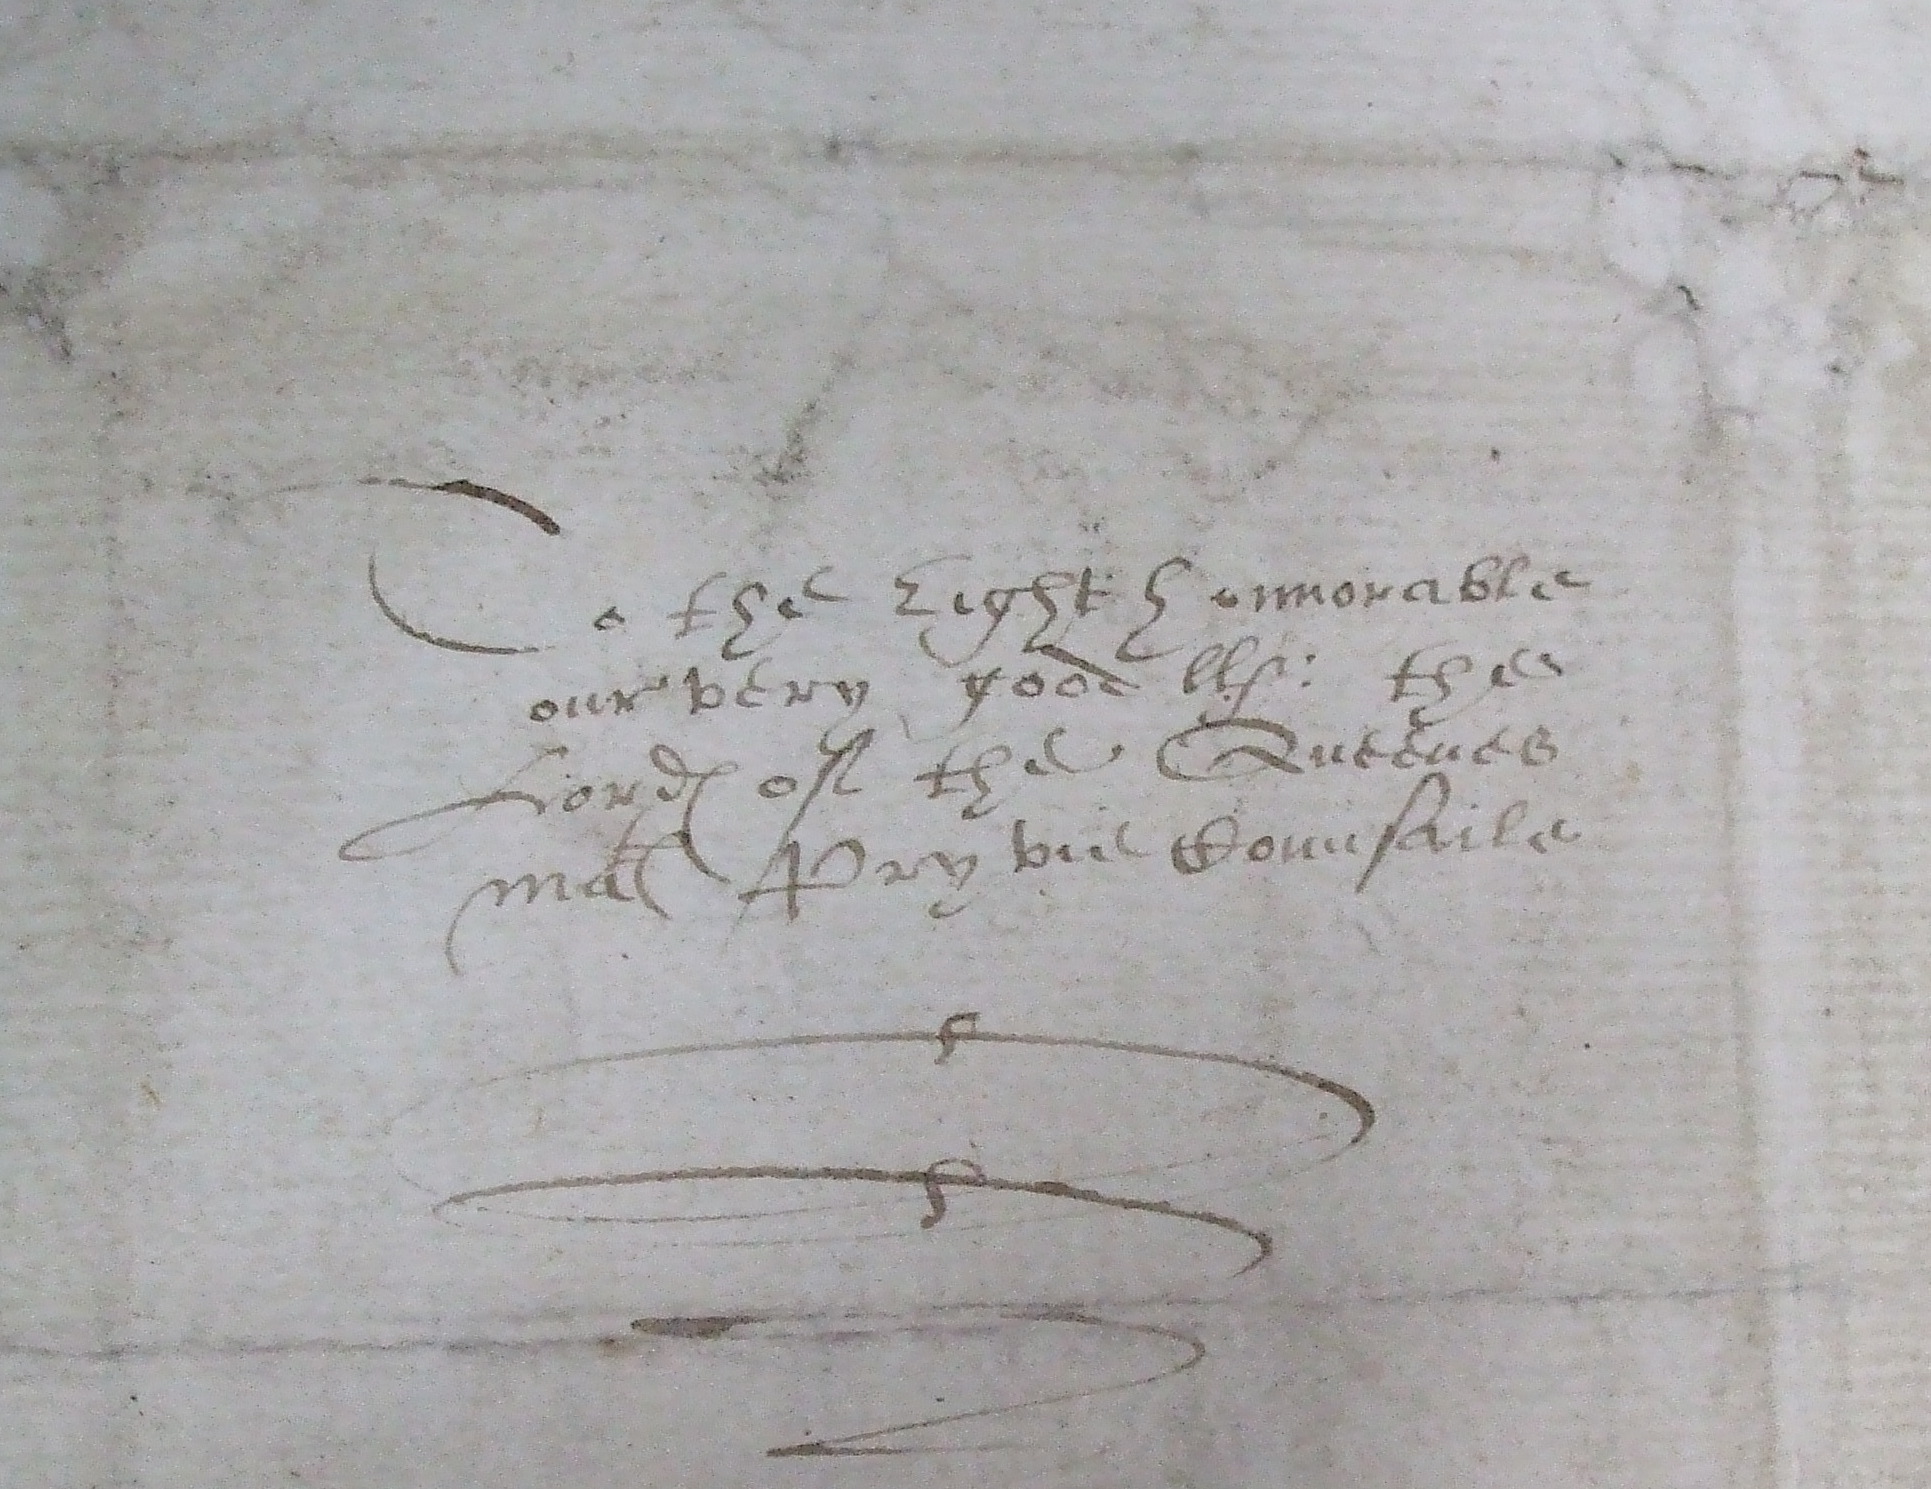 To the Right honnorable
our very good llp: the
Lordes of the Queenes
mates Pryvie Counsaile